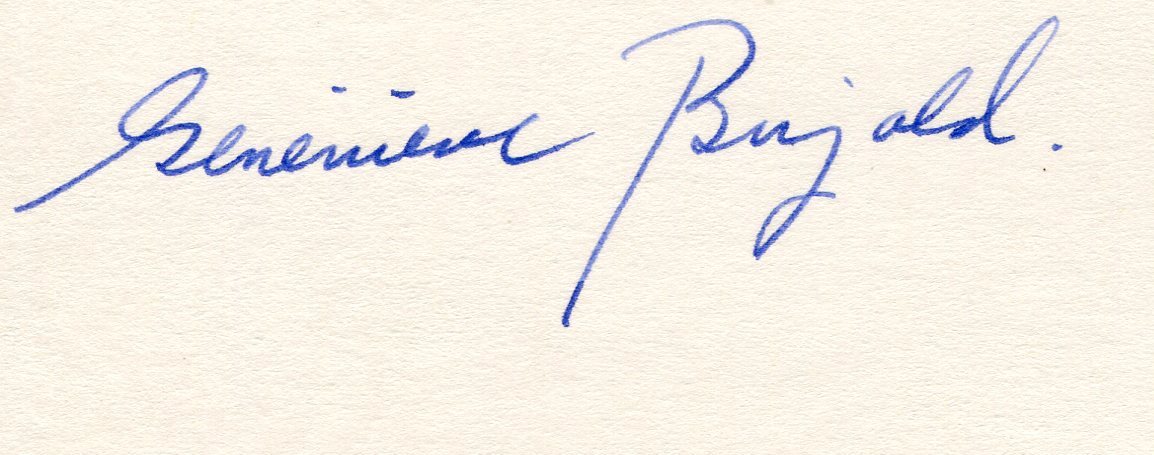 Geneviève Bujold.